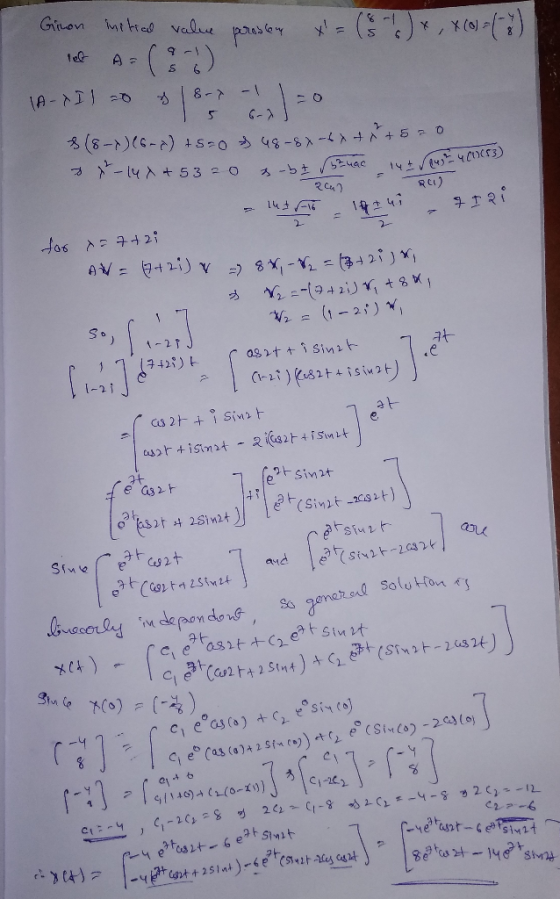 Given initial value problem x' = (8 -1 / 5 6) x, x(0) = (-4 / 8)
let A = (8 -1 / 5 6)
|A-λI| = 0 ⇒ |8-λ -1 / 5 6-λ| = 0
⇒ (8-λ)(6-λ) + 5 = 0 ⇒ 48-8λ-6λ+λ²+5 = 0
⇒ λ²-14λ+53 = 0 ⇒ -b±√b²-4ac / 2(a) = 14±√(14)²-4(1)(53) / 2(1)
= 14±√-16 / 2 = 14±4i / 2 = 7±2i
for λ = 7+2i
AV = (7+2i) V ⇒ 8V₁-V₂ = (7+2i) V₁
⇒ V₂ = -(7+2i) V₁ + 8V₁
V₂ = (1-2i) V₁
So, [1 / 1-2i]
[1 / 1-2i] e^(7+2i)t = [cos2t + i sin2t / (1-2i)(cos2t + i sin2t)] . e^7t
= [cos2t + i sin2t / cos2t + i sin2t - 2i(cos2t + i sin2t] e^7t
= [e^7t cos2t / e^7t(cos2t + 2sin2t)] + i [e^7t sin2t / e^7t(sin2t - 2cos2t)]
Since [e^7t cos2t / e^7t(cos2t + 2sin2t] and [e^7t sin2t / e^7t(sin2t - 2cos2t] are
linearly independent, so general solution is
x(t) = [c₁e^7t cos2t + c₂e^7t sin2t / c₁e^7t(cos2t + 2sint) + c₂e^7t(sin2t - 2cos2t)]
Since x(0) = (-4 / 8)
[-4 / 8] = [c₁e⁰cos(0) + c₂e⁰sin(0) / c₁e⁰(cos(0) + 2sin(0)) + c₂e⁰(sin(0) - 2cos(0)]
[-4 / 8] = [c₁+0 / c₁(1+0) + c₂(0-2(1))] ⇒ [c₁ / c₁-2c₂] = [-4 / 8]
c₁ = -4, c₁-2c₂ = 8 ⇒ 2c₂ = c₁-8 ⇒ 2c₂ = -4-8 ⇒ 2c₂ = -12
c₂ = -6
∴ x(t) = [-4e^7t cos2t - 6e^7t sin2t / -4e^7t(cos2t + 2sin2t) - 6e^7t(sin2t - 2cos2t] = [-4e^7t cos2t - 6e^7t sin2t / 8e^7t cos2t - 14e^7t sin2t]